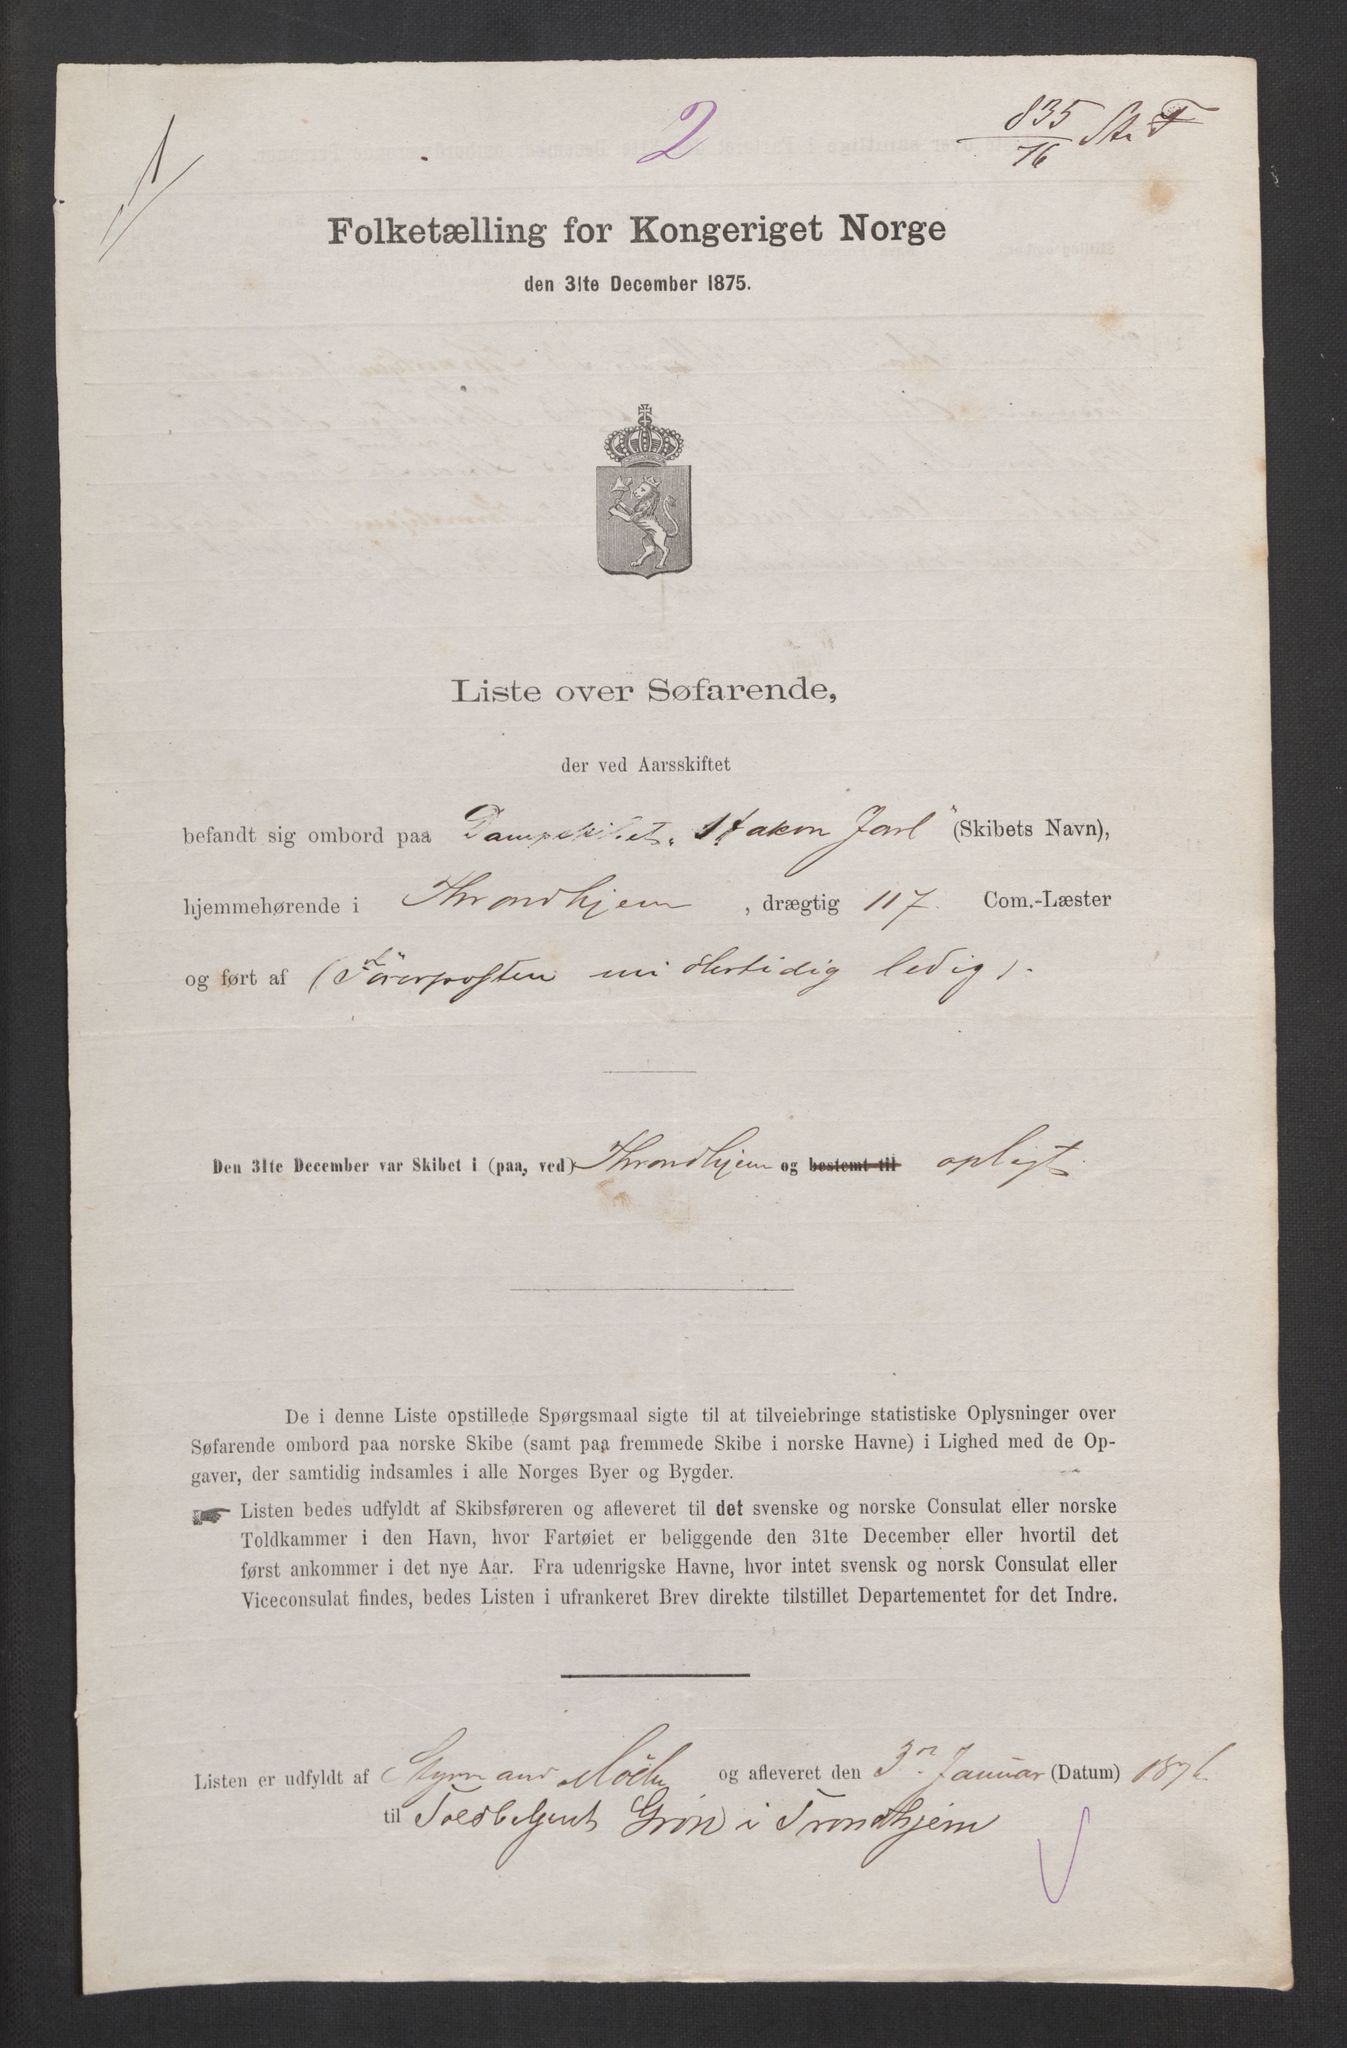 2
835/76 St. F
Folketælling for Kongeriget Norge
den 31te December 1875.
Liste over Søfarende,
der ved Aarsskiftet
befandt sig ombord paa Dampskibet „Hakon Jarl" (Skibets Navn),
hjemmehørende i Throndhjem, drægtig 117 Com.-Læster
og ført af (Förerposten midlertidig ledig).
Den 31te December var Skibet i (paa, ved) Throndhjem og bestemt til oplagt
De i denne Liste opstillede Spørgsmaal sigte til at tilveiebringe statistiske Oplysninger over
Søfarende ombord paa norske Skibe (samt paa fremmede Skibe i norske Havne) i Lighed med de Op-
gaver, der samtidig indsamles i alle Norges Byer og Bygder.
Listen bedes udfyldt af Skibsføreren og afleveret til det svenske og norske Consulat eller norske
Toldkammer i den Havn, hvor Fartøiet er beliggende den 31te December eller hvortil det
først ankommer i det nye Aar. Fra udenrigske Havne, hvor intet svensk og norsk Consulat eller
Viceconsulat findes, bedes Listen i ufrankeret Brev direkte tilstillet Departementet for det Indre.
Listen er udfyldt af Styrmand og afleveret den 3die Januar (Datum) 1876
til Toldbetjent Grön i Trondhjem